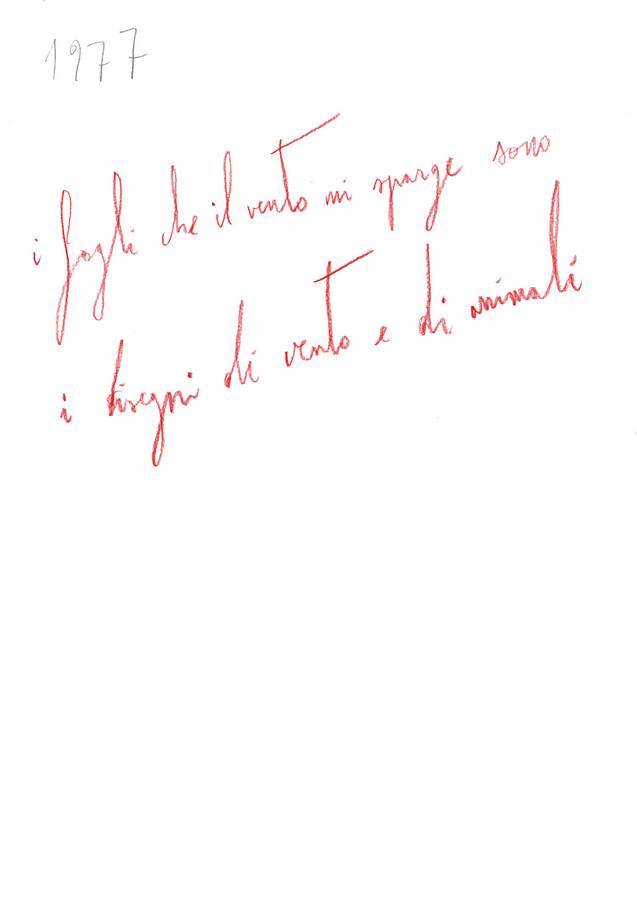 1977
i fogli che il vento mi sparge sono
i disegni di vento e di animali